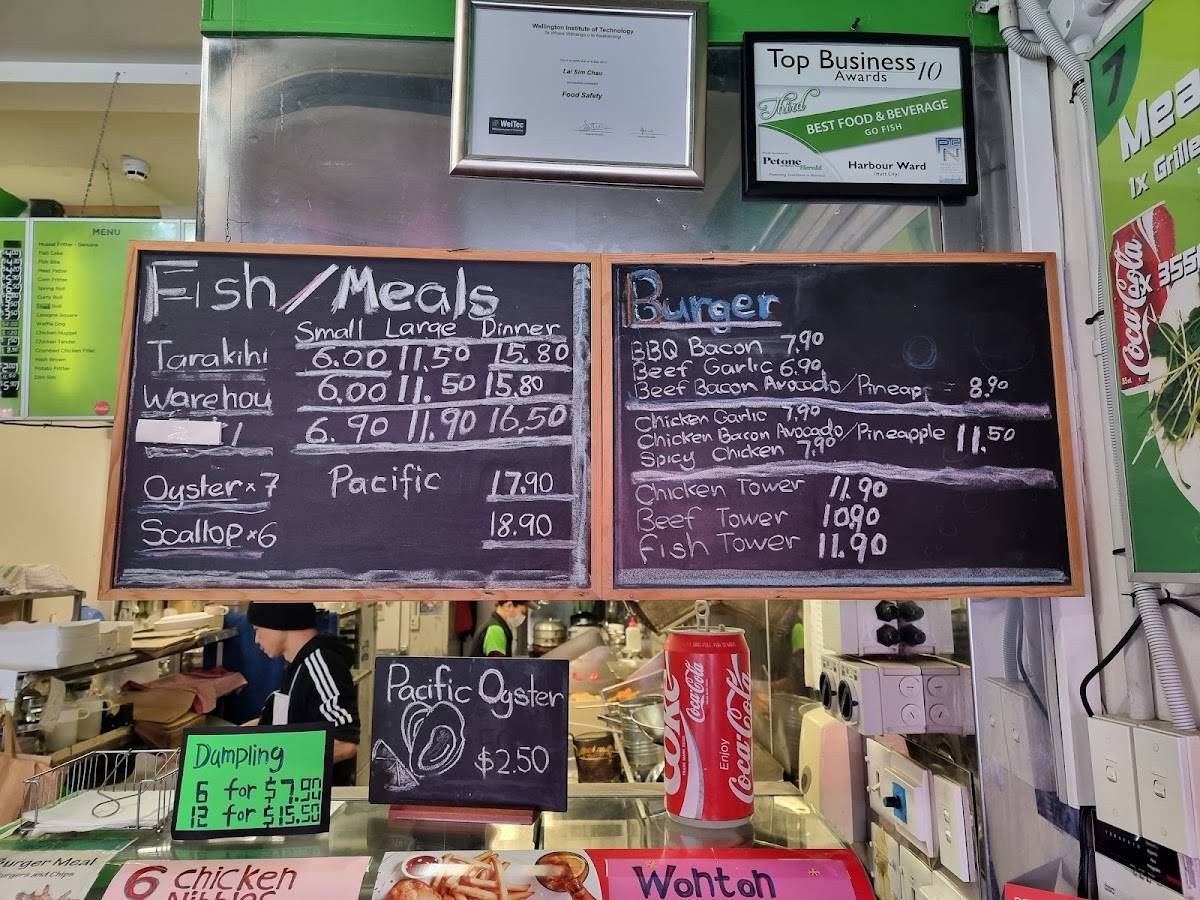 Wellington Institute of Technology
Te Whare Wānanga o te Awakairangi
Lai Sim Chau
Food Safety
WelTec
Top Business
Awards 10
Third
BEST FOOD & BEVERAGE
GO FISH
Petone
Herald
Harbour Ward
(Hutt City)
7
Mea
1x Grille
Coca-Cola
MENU
Mussel Fritter - Genuine
Fish Cake
Fish Bite
Meat Pattie
Corn Fritter
Spring Roll
Curry Roll
Roll
Lasagne Square
Waffle Dog
Chicken Nugget
Chicken Tender
Crumbed Chicken Fillet
Hash Brown
Potato Fritter
Dim Sim
Fish/Meals
Small Large Dinner
Tarakihi 6.00 11.50 15.80
Warehou 6.00 11.50 15.80
6.90 11.90 16.50
Oyster x 7 Pacific 17.90
Scallop x 6 18.90
Burger
BBQ Bacon 7.90
Beef Garlic 6.90
Beef Bacon Avocado/Pineapp 8.90
Chicken Garlic 7.90
Chicken Bacon Avocado/Pineapple 11.50
Spicy Chicken 7.90
Chicken Tower 11.90
Beef Tower 10.90
fish Tower 11.90
Pacific Oyster
$2.50
Dampling
6 for $7.90
12 for $15.50
Coke
Coca-Cola
Enjoy
Coca-Cola
urger Meal
urgers and Chips
6 chicken
Nibbles
Wonton